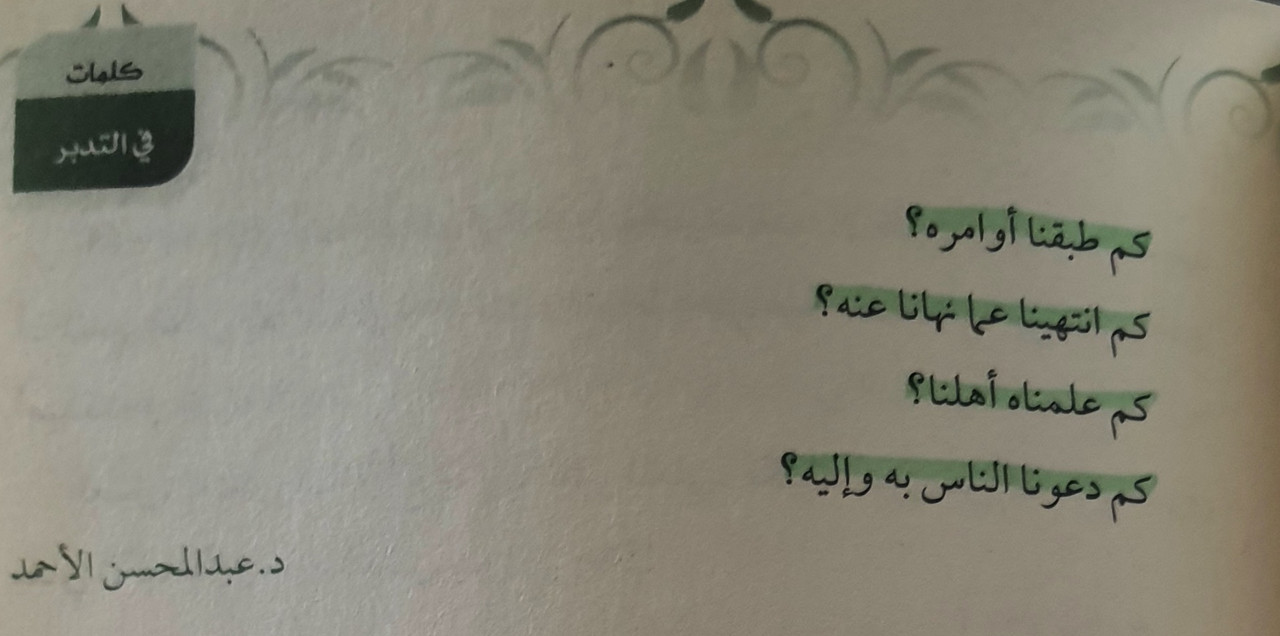 كلمات
في التدبر
كم طبقنا أوامره؟
كم انتهينا عما نهانا عنه؟
كم علمناه أهلنا؟
كم دعونا الناس به وإليه؟
د.عبدالمحسن الأحمد